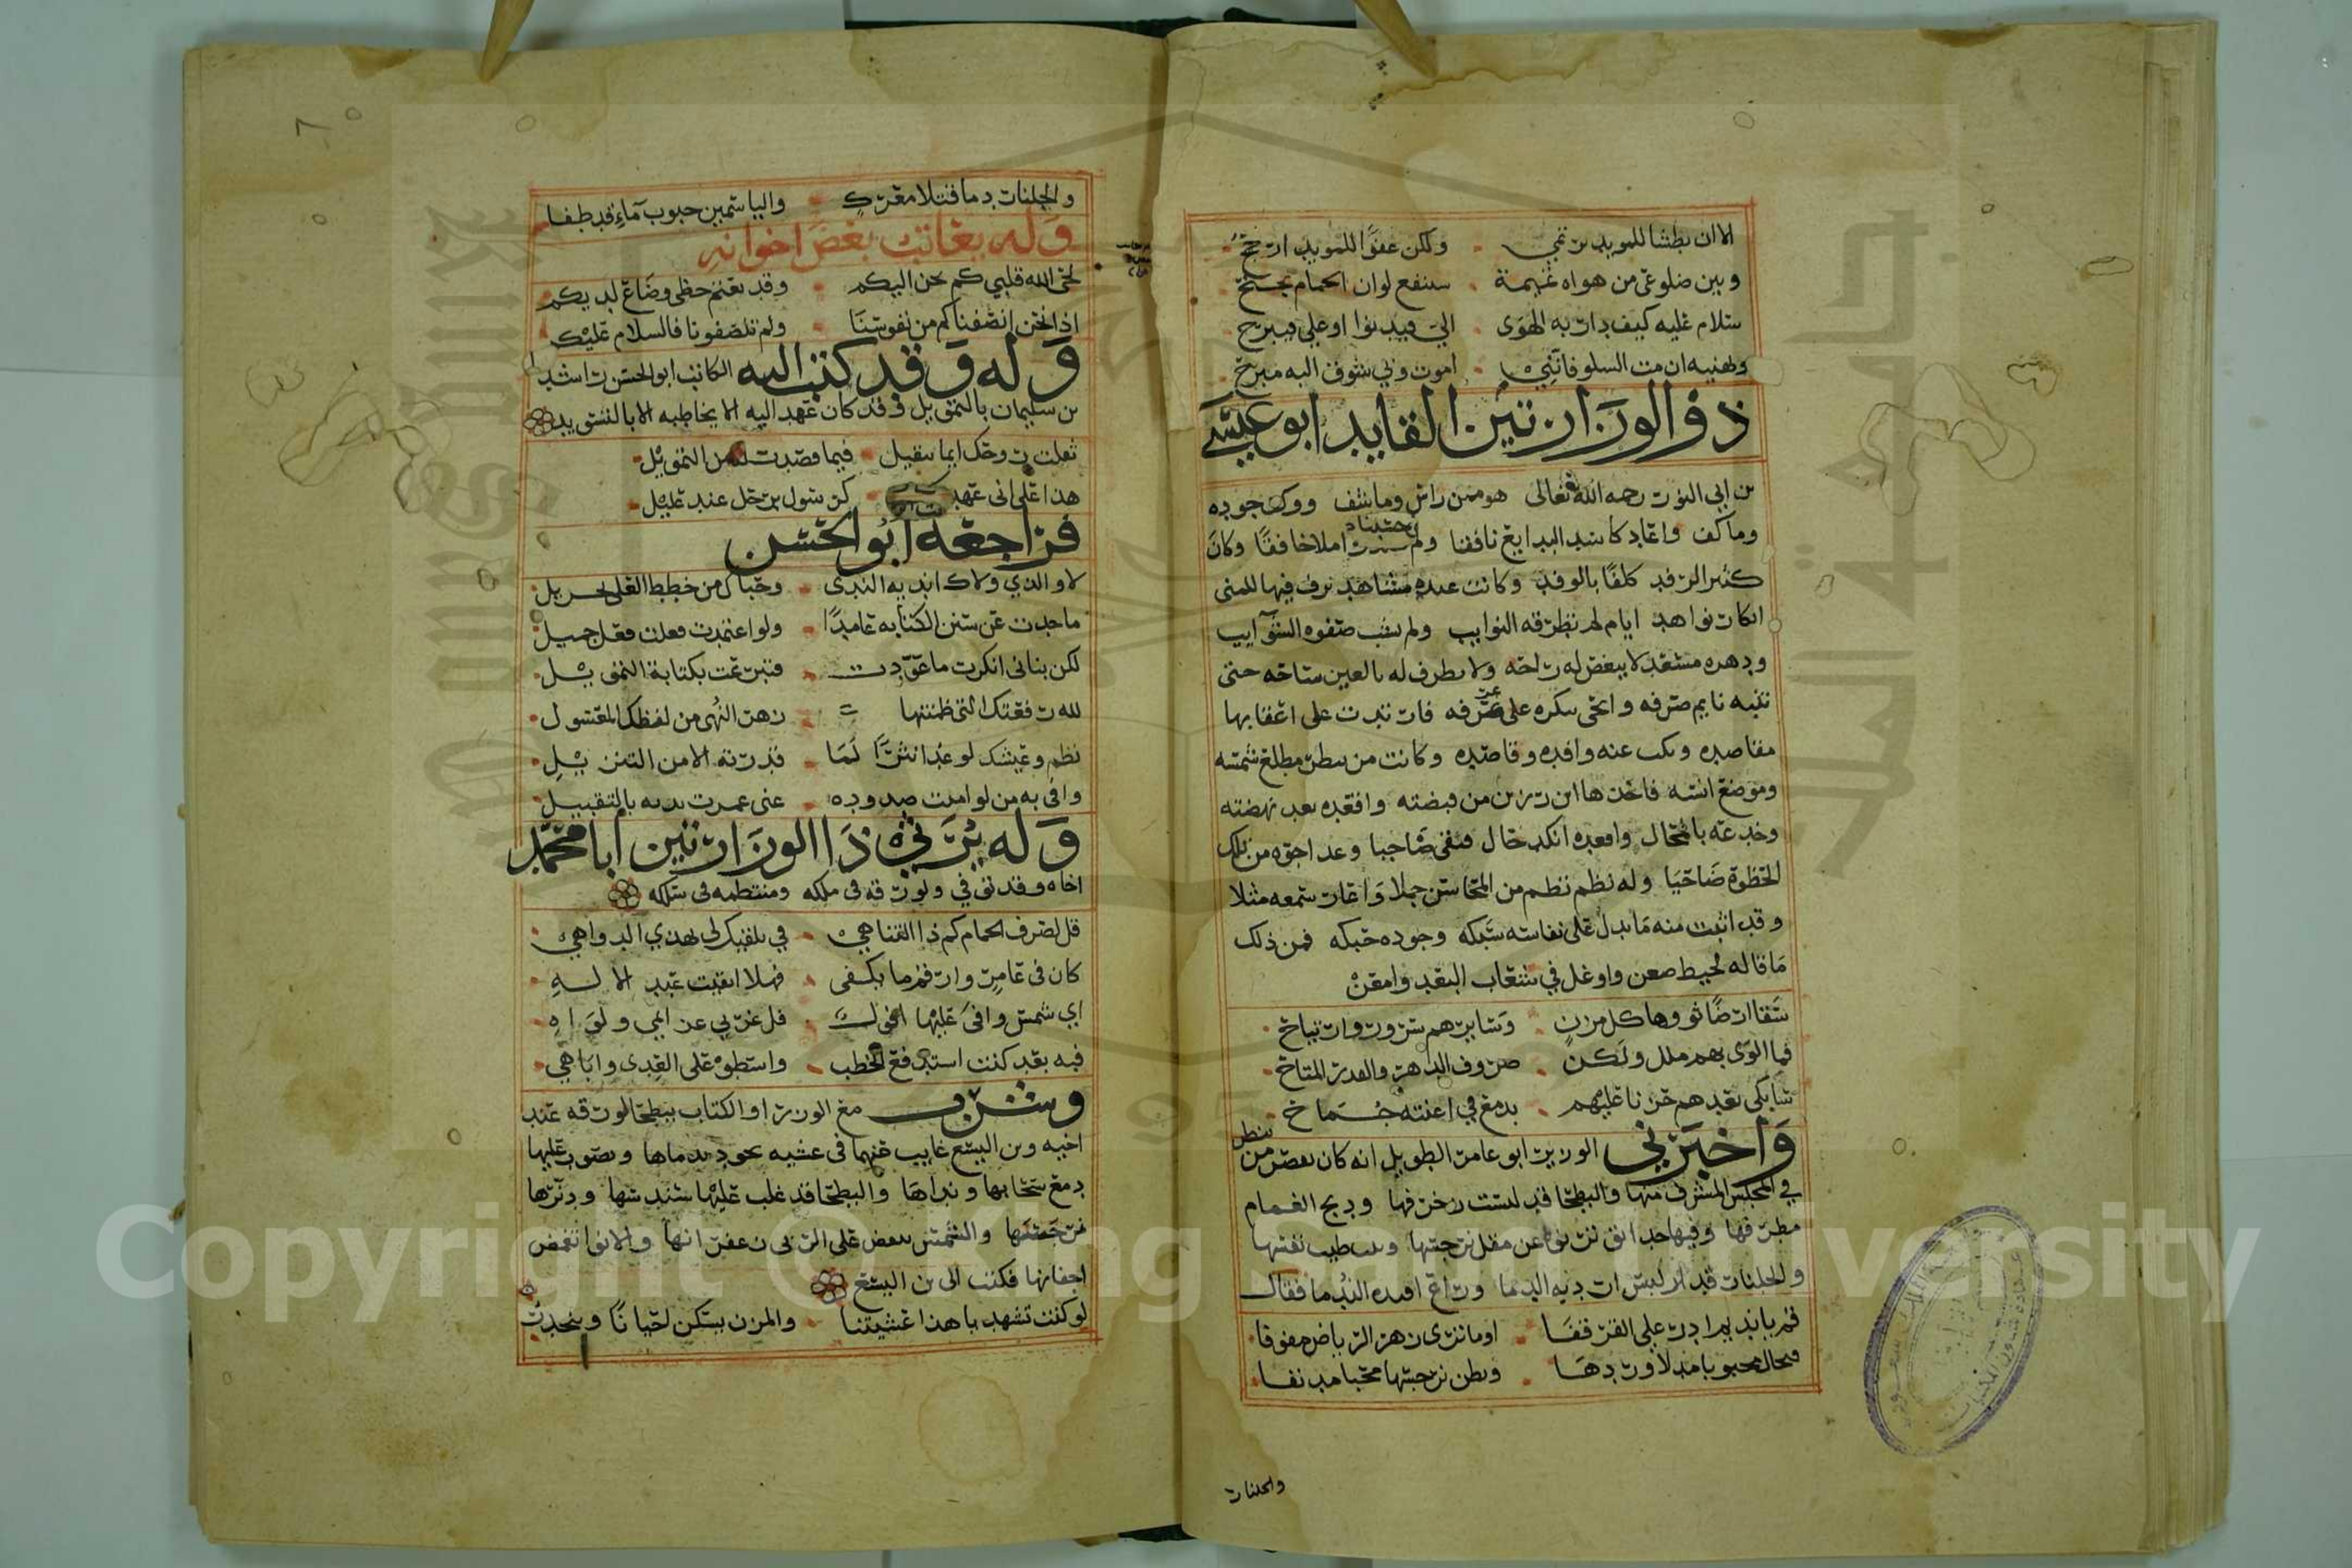 الا ان بطشا للمويد يرتمي ولكن عفوًا للمويد ارجح
وبين ضلوعي من هواه تميمة ستنفع لو ان الحمام يجلح
سلام عليه كيف دار به الهوى الي فيدنوا او علي فيبرح
ويهنيه ان مت السلو فانني اموت ولي شوق اليه مبرح
ذو الوزارتين القايد ابو عيسى
بن ابي البون رحمه الله تعالى هو ممن راش وما شف ووكف جوده
وما كف واعاد كاسد البدايع نافقا ولم املا خافقًا وكان
كثير الرفد كلفًا بالوفد وكانت عنده مشاهد تزف فيها للمنى
ابكار نواهد ايام لم تطرقه النوايب ولم تشب صفوه الشوآيب
ودهره مسعد لا يبغض له راحه ولا يطرف له بالعين ساحه حتى
تنبه نايم صرفه وانحى نكره على عرفه فارتدت على اعقابها
مقاصده ونكب عنه وافده وقاصده وكانت مربيطر مطلع شمسه
وموضع انسه فاخذها ابن رزين من قبضته واقعده بعد نهضته
وخدعه بالمحال واقعده انكد حال فبقي ضاحيا وغدا جوه من تلك
الحظوة صاحيا وله نظم نظم من المحاسن جملا واعار سمعه مثلا
وقد اثبت منه ما يدل على نفاسة سبكه وجوده حبكه فمن ذلك
ما قاله لخليط ظعن واوغل في شعاب البعد وامعن
سقا ارضًا ثووها كل مزن وسايرهم سرور وارتياح
فما الوى بهم ملل ولكن صروف الدهر والقدر المتاح
سابكي بعدهم حزنا عليهم بدمع في اعنته جماح
واخبرني الوزير ابو عامر الطويل انه كان بقصر مربيطر
في المجلس المشرف منها والبطحا قد لبست زخرفها ودبج الغمام
مطرفها وفيها حدائق ترنوا عن مقل نرجسها وتبث طيب نفسها
والجلنار قد لبس اردية الدما وراع افيدة الندما فقال
قم يا نديم ادر علي القرقفا اوما ترى زهر الرياض مفوفا
فتخال محبوبا مدلا وردها وتظن نرجسها محبا مدنفا
والجلنار
والجلنار دما قتلا معرك والياسمين حبوب مآء قد طفا
وله يعاتب بعض اخوانه
لحى الله قلبي كم يحن اليكم وقد بعتم حظي وضاع لديكم
اذا نحن انصفناكم من نفوسنا ولم تنصفونا فالسلام عليكم
وله وقد كتب اليه الكاتب ابو الحسن راشد
بن سليمان بالتمويل وقد كان عهد اليه الا يخاطبه الا بالتسويد
ثقلت روحك ايما تثقيل فيما قصدت له من التمويل
هذا على اني عهد كرسول برحل عند قليل
فراجعه ابو الحسن
لا والذي ولاك اندية الندى وحباك من خطط العلى بجزيل
ما حدت عن سنن الكتابه عامدًا ولو اعتمدت فعلت فعل جميل
لكن بناني انكرت ما عودت فتبرعت بكتابة التمويل
لله رقعتك التي ظننتها زهر النهى من لفظك المعسول
نظم وعيشك لو غدا نثرًا لما قدرته الا من التنزيل
وافى به من لو امنت صدوده عني عمرت يديه بالتقبيل
وله يرثي ذا الوزارتين ابا محمد
اخاه وقد توفي ولورقه في ملكه ومنتظمه في سلكه
قل لصرف الحمام كم ذا التناهي في تلقيك لي بهذي الدواهي
كان في عامر وارقم ما يكفى فهلا ابقيت عبد الاله
اي شمس وافى عليها افول فل غربي عن المي ولواه
فيه بعد كنت استدفع الخطب واسطو على العدى واباهي
وشرب مع الوزرا والكتاب ببطحا لورقه عند
اخيه وبن اليسع غايب عنها في عشيه تجود بدماها وتصوب عليها
دمع سحابها ونداها والبطحا قد غلب عليها سندسها ودنرها
نرجسها والشمس تنفض على الربى زعفرانها والانوا تغمض
اجفانها فكتب الى بن اليسع
لو كنت تشهد يا هذا عشيتنا والمزن يسكن احيانًا وينحدر